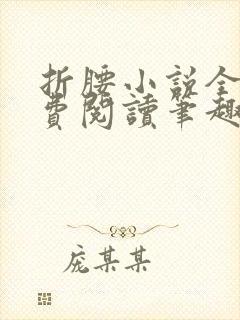 折腰小説全
費閱讀筆趣
庞某某